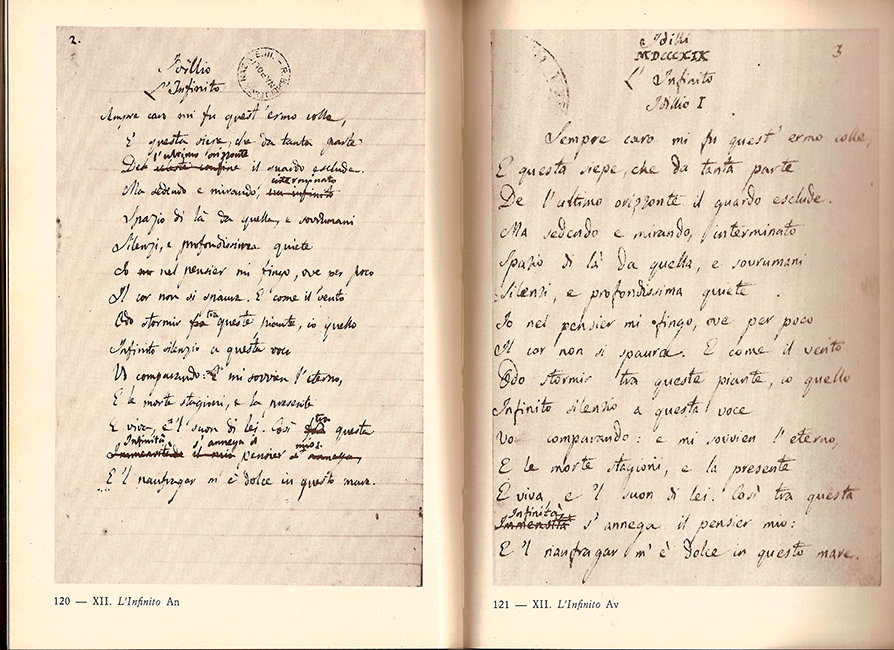 2.
Idillio
L'Infinito
Sempre caro mi fu quest'ermo colle,
E questa siepe, che da tanta parte
l'ultimo orizzonte
De celeste confine il guardo esclude.
interminato
Ma sedendo e mirando, un infinito
Spazio di là da quella, e sovrumani
Silenzi, e profondissima quiete
Io nel pensier mi fingo, ove per poco
Il cor non si spaura. E come il vento
tra
Odo stormir fra queste piante, io quello
Infinito silenzio a questa voce
Vo comparando: E mi sovvien l'eterno,
E le morte stagioni, e la presente
E viva, e 'l suon di lei. Così fra tra questa
Infinità s'annega il mio:
Immensitade il mio pensier s'annega,
E 'l naufragar m'è dolce in questo mare.
120 — XII. L'Infinito An
Idilli
MDCCCXIX
3
L'Infinito
Idillio I
Sempre caro mi fu quest'ermo colle,
E questa siepe, che da tanta parte
De l'ultimo orizzonte il guardo esclude.
Ma sedendo e mirando, interminato
Spazio di là da quella, e sovrumani
Silenzi, e profondissima quiete
Io nel pensier mi fingo, ove per poco
Il cor non si spaura. E come il vento
Odo stormir tra queste piante, io quello
Infinito silenzio a questa voce
Vo comparando: e mi sovvien l'eterno,
E le morte stagioni, e la presente
E viva e 'l suon di lei. Così tra questa
Infinità
Immensità s'annega il pensier mio:
E 'l naufragar m'è dolce in questo mare.
121 — XII. L'Infinito Av